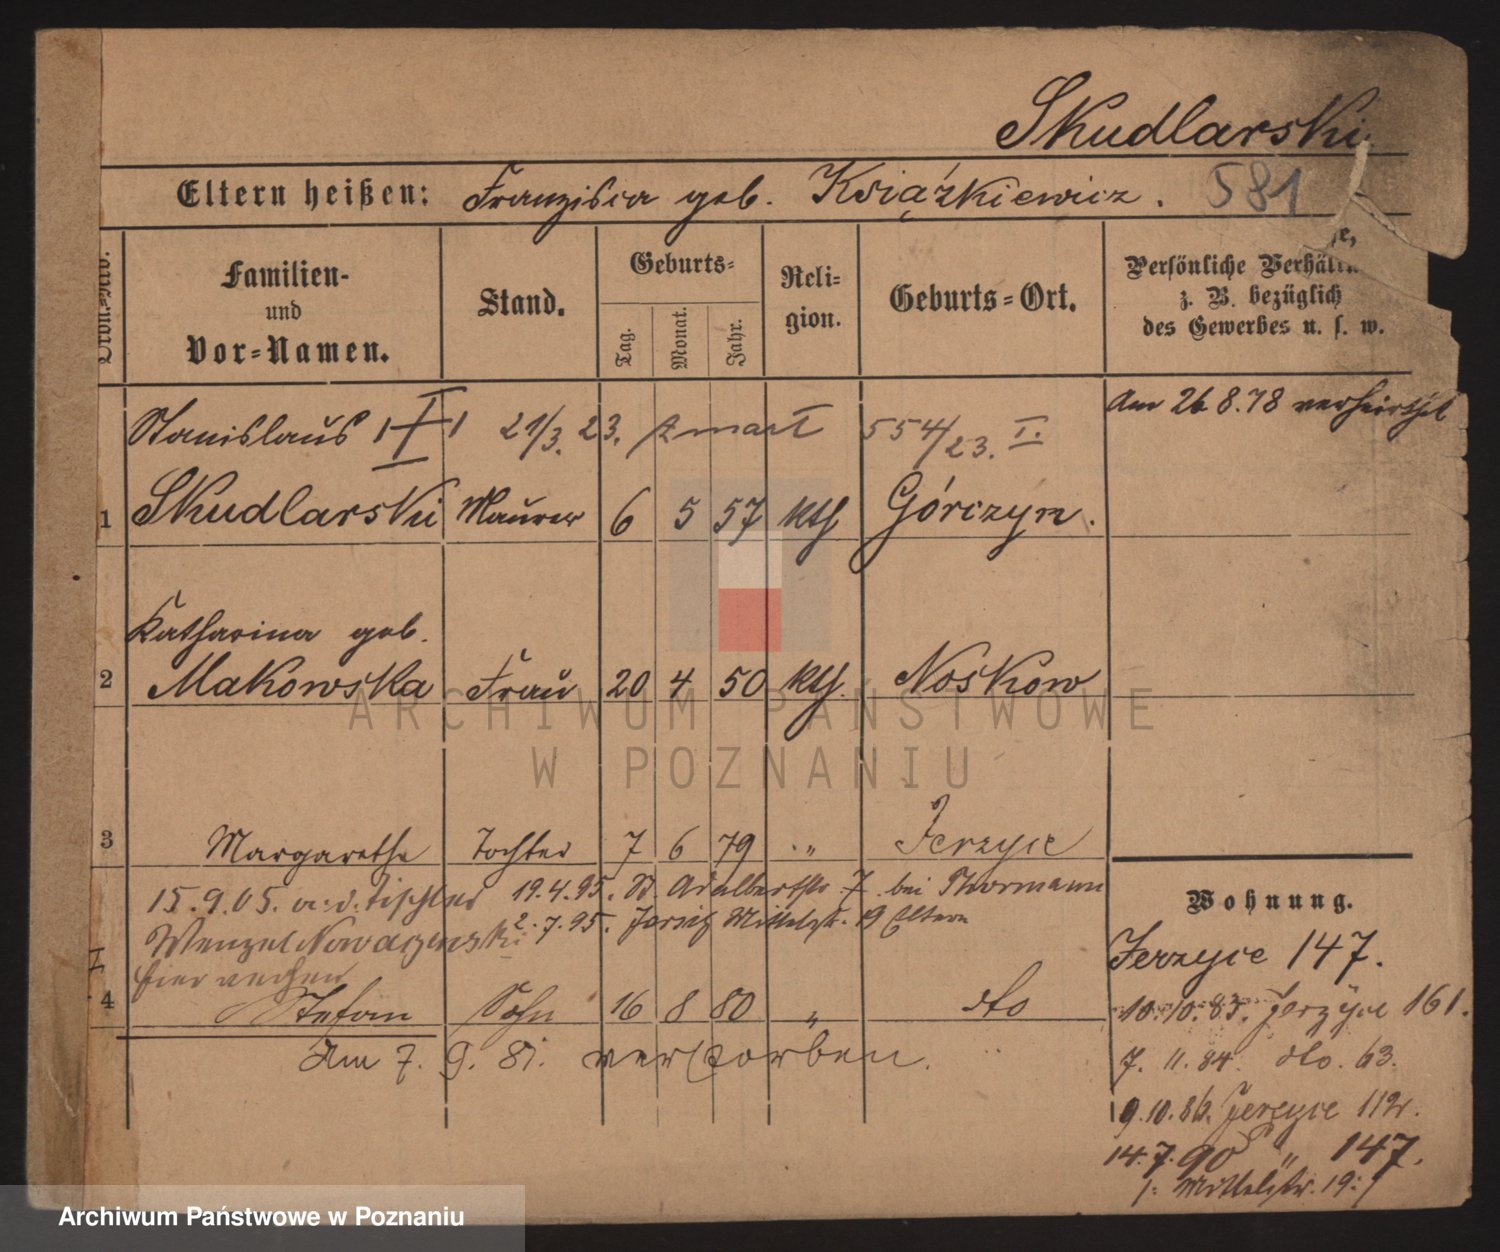 Skudlarski
Eltern heißen: Franziska geb. Książkiewicz. 581
Familien-
und
Vor-Namen.
Stand.
Geburts-
Tag. Monat. Jahr.
Reli-
gion.
Geburts-Ort.
Persönliche
z. B. bezüglich
des Gewerbes u. s. w.
Am 26.8.78 verheirathet
Stanislaus 21/3. 23. 554/23. I.
1 Skudlarski Maurer 6 5 57 kth Górczyn.
Katharina geb.
2 Makowska Frau 20 4 50 kth. Noskow
3 Margarethe Tochter 7 6 79 " Jerzyce
15.9.05. a.d. Tischler 19.4.95. St. Adalbertstr. 7 bei Thormann
Wenzel 2.7.95. Jersitz Mittelstr. 19 Eltern
4 Stefan Sohn 16 8 80 " dto
Am 7. 9. 81. verstorben.
Wohnung.
Jerzyce 147.
10.10.83. Jerzyce 161.
7. 11. 84. dto. 63.
9.10.86. Jerzyce 112.
14.7.90 " 147.
Mittelstr. 19
ARCHIWUM PAŃSTWOWE
W POZNANIU
Archiwum Państwowe w Poznaniu